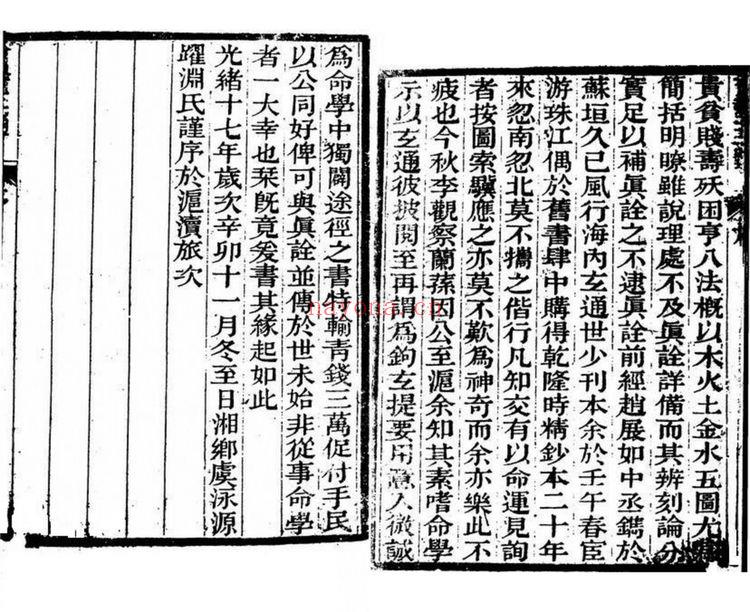 貴貧賤壽殀困亨八法概以木火土金水五圖尤
簡括明瞭雖說理處不及眞詮詳備而其辨刻論分
實足以補眞詮之不逮眞詮前經趙展如中丞鐫於
蘇垣久已風行海內玄通世少刊本余於壬午春宦
游珠江偶於舊書肆中購得乾隆時精鈔本二十年
來忽南忽北莫不攜之偕行凡知交有以命運見詢
者按圖索驥應之亦莫不歎為神奇而余亦樂此不
疲也今秋李觀察蘭蓀因公至滬余知其素嗜命學
示以玄通彼披閱至再謂為鉤玄提要用意入微誠
為命學中獨闢途徑之書特輸青錢三萬促付手民
以公同好俾可與眞詮並傳於世未始非從事命學
者一大幸也栞旣竟爰書其緣起如此
光緒十七年歲次辛卯十一月冬至日湘鄉虞泳源
躍淵氏謹序於滬瀆旅次
nayona.cn